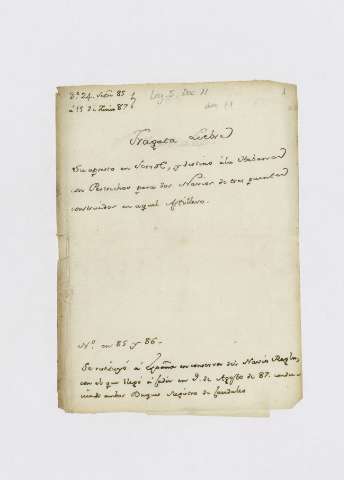 D.n 24. Nov.e 85
à 15 de Junio 87.
Leg. 5. Doc 11
doc 11
1
Fragata Liebre
Su apresto en Ferrol, y destino à la Habana
con Pertrechos para dos Navios de tres puentes
construidos en aquel Astillero.
N.o en 85 y 86.
Se restituyó à España en conserva del Navio Regla,
con el que llegó à Cadiz en 9. de Agosto de 87. condu-
ciendo ambos Buques Registro de Caudales